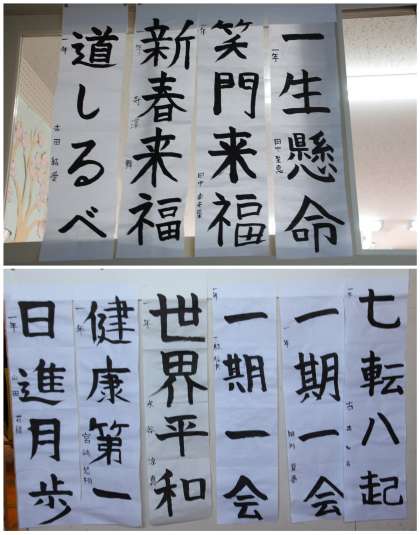 一生懸命
一年
笑門来福
一年
新春来福
一年
道しるべ
一年
七転八起
一期一会
一年
一期一会
一年
世界平和
一年
健康第一
一年
宮崎
日進月歩
一年